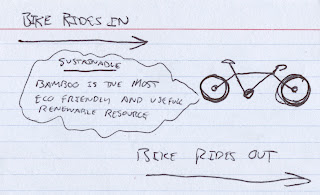 BIKE RIDES IN
SUSTAINABLE
BAMBOO IS THE MOST
ECO FRIENDLY AND USEFUL
RENEWABLE RESOURCE
BIKE RIDES OUT